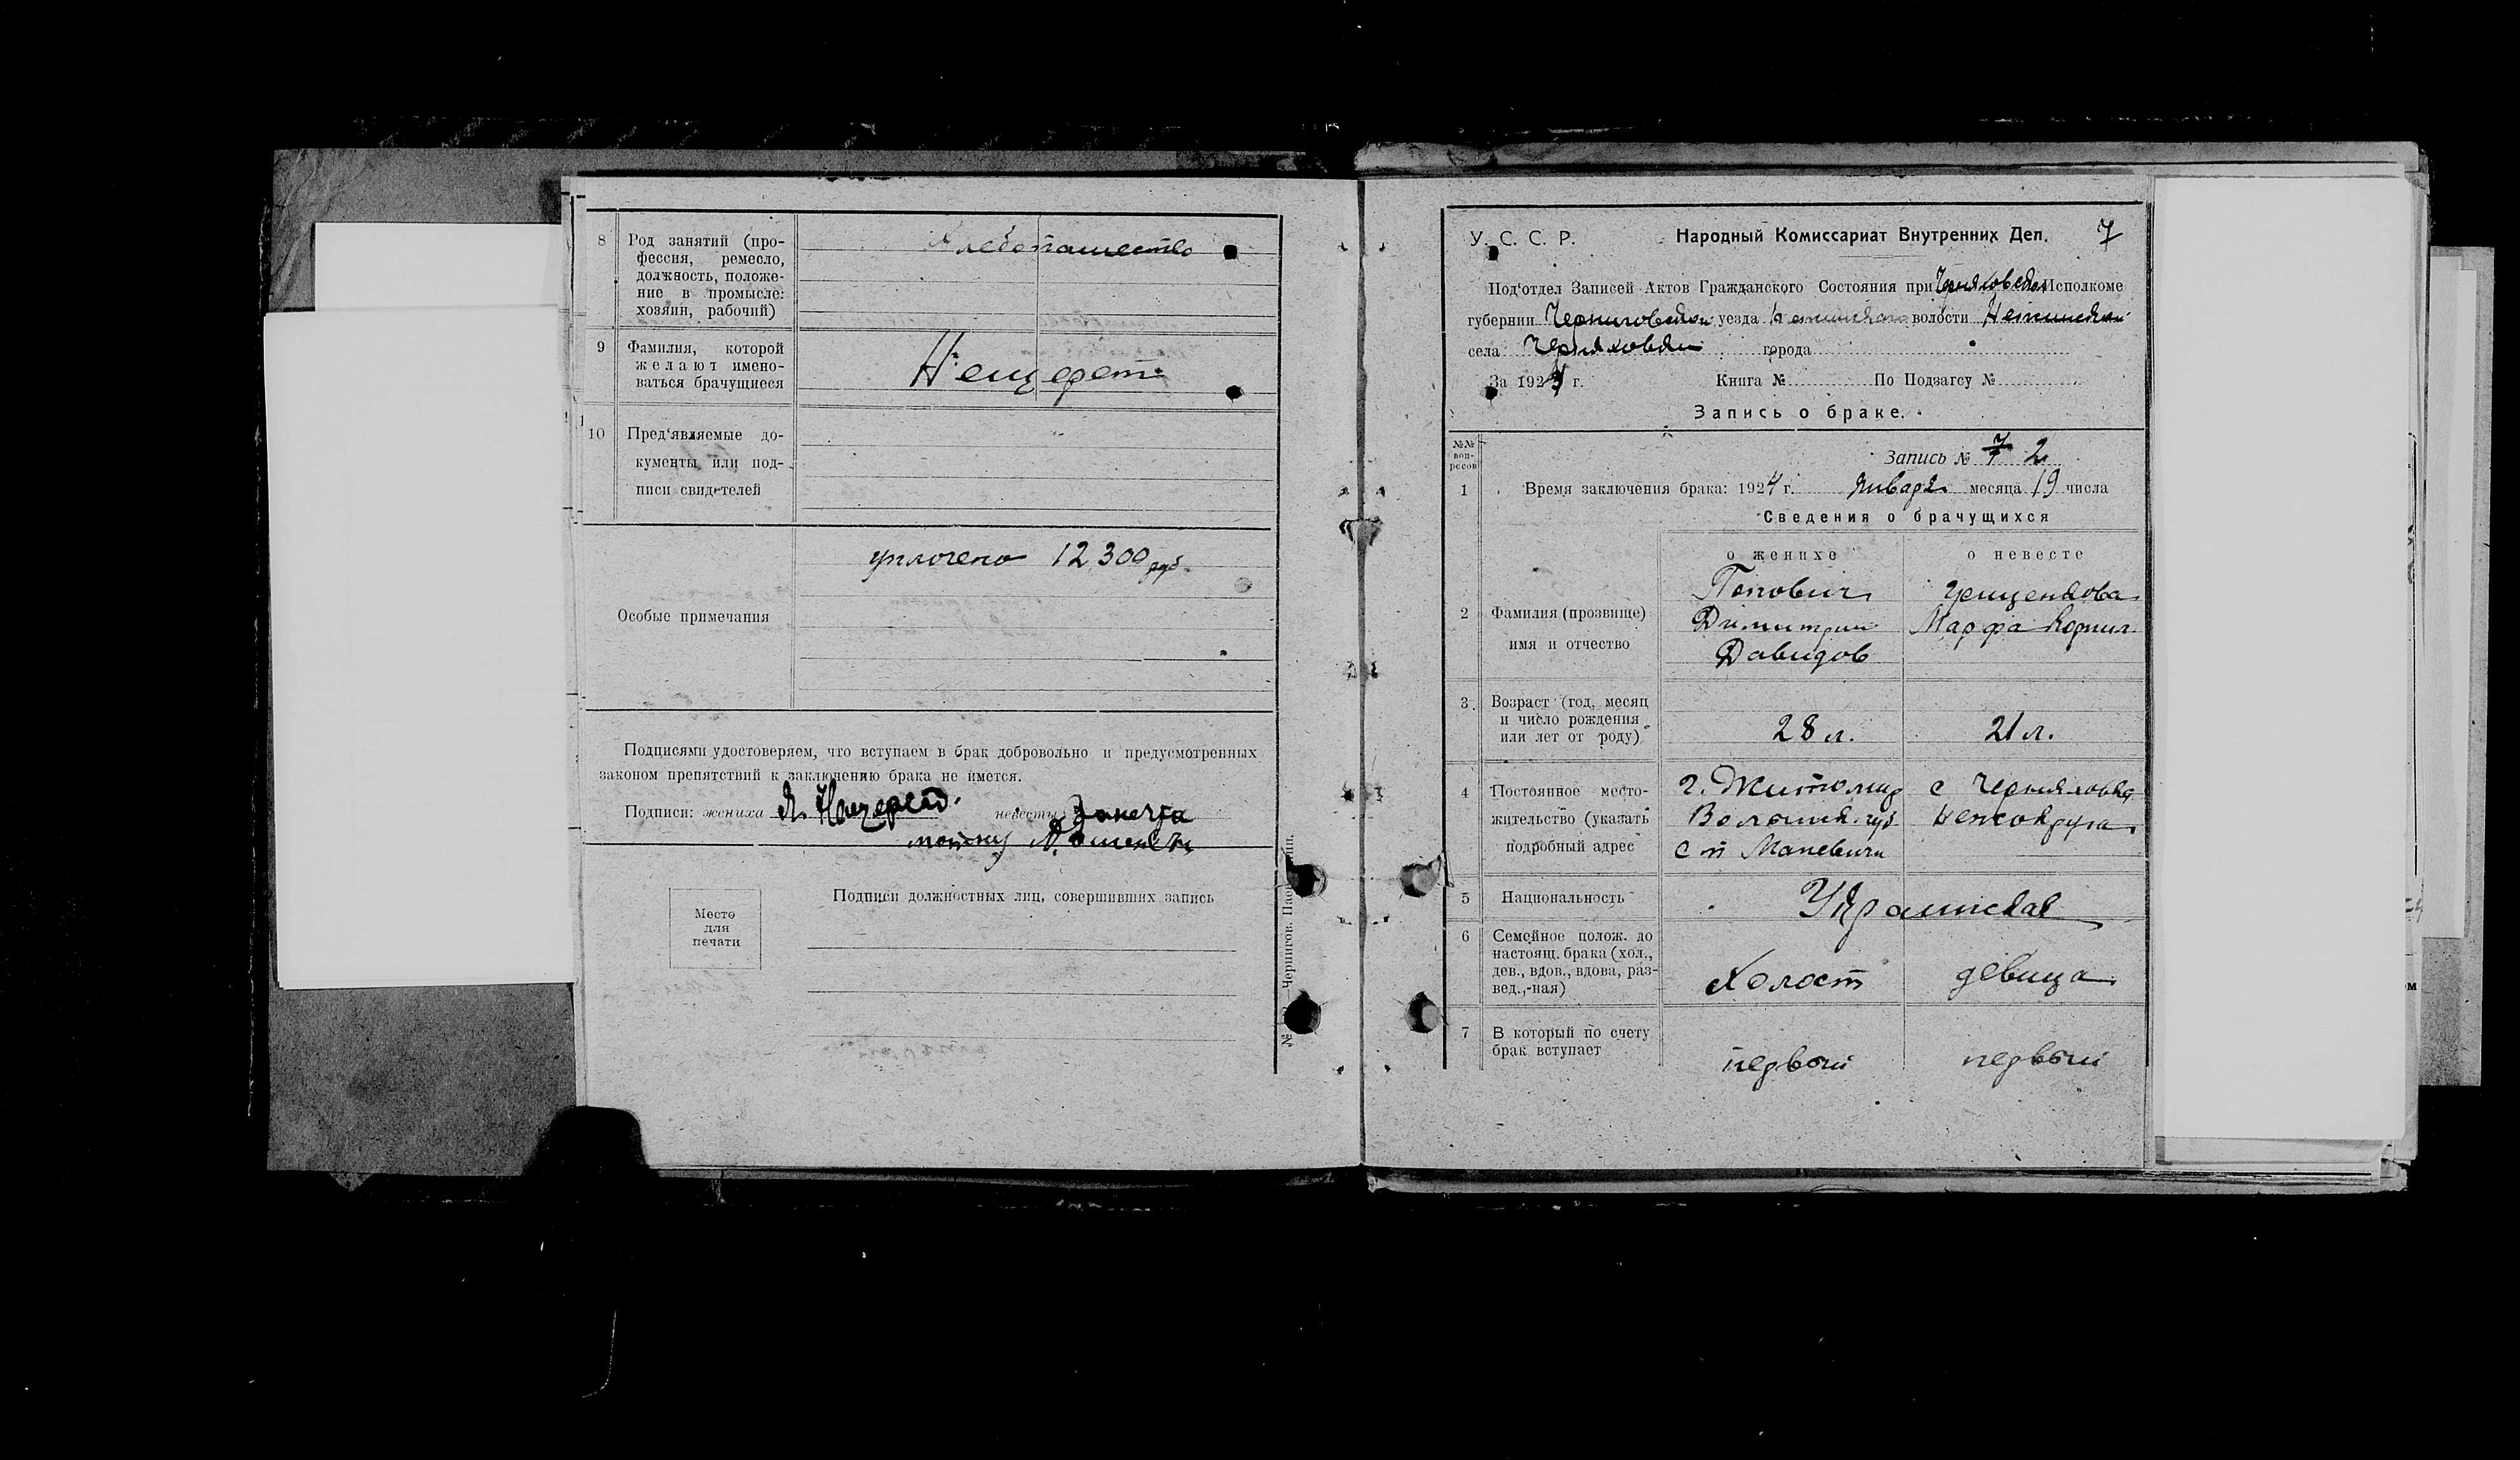 8 Род занятий (про-
фессия, ремесло,
должность, положе-
ние в промысле:
хозяин, рабочий)
Хлебопашество
9 Фамилия, которой
желают имено-
ваться брачущиеся
Нещерет
10 Пред'являемые до-
кументы или под-
писи свидетелей
Особые примечания
уплочено 12300 руб.
Подписями удостоверяем, что вступаем в брак добровольно и предусмотренных
законом препятствий к заключению брака не имется.
Подписи: жениха невесты
Место
для
печати
Подписи должностных лиц, совершивших запись
У. С. С. Р. Народный Комиссариат Внутренних Дел. 7
Под'отдел Записей Актов Гражданского Состояния при Исполкоме
губернии Черниговской уезда волости
села города
За 1924 г. Книга № По Подзагсу №
Запись о браке.
№№
воп-
росов
Запись № 2
1 Время заключения брака: 1924 г. Января месяца 19 числа
Сведения о брачущихся
о женихе о невесте
2 Фамилия (прозвище)
имя и отчество
Попович
Димитрий
Давидов
Грищенкова
Марфа Корнил.
3. Возраст (год, месяц
и число рождения
или лет от роду)
28 л. 21 л.
4 Постоянное место-
жительство (указать
подробный адрес
г. Житомир
Волынск. губ.
ст Маневичи
с Черняховка
5 Национальность
Украинская
6 Семейное полож. до
настоящ. брака (хол.,
дев., вдов., вдова, раз-
вед.,-ная)
Холост девица
7 В который по счету
брак вступает
первый первый